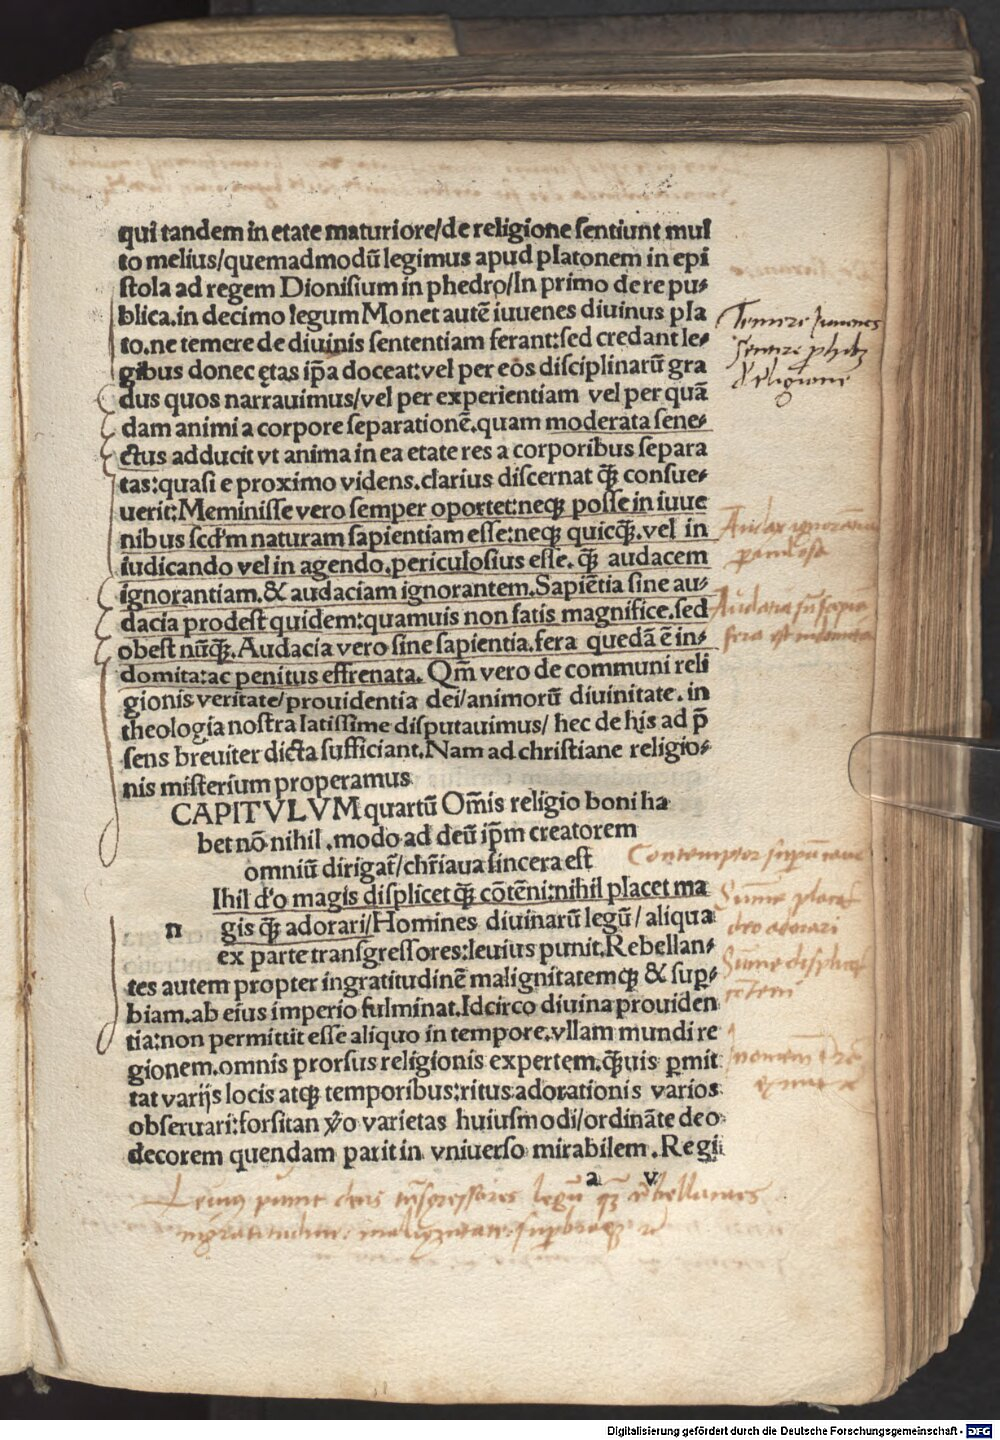 qui tandem in etate maturiore/de religione sentiunt mul
to melius/quemadmodū legimus apud platonem in epi
stola ad regem Dionisium in phedro/In primo de re pu-
blica.in decimo legum Monet autē iuuenes diuinus pla
to.ne temere de diuinis sententiam ferant:sed credant le-
gibus donec ętas ip̄a doceat:vel per eos disciplinarū gra
dus quos narrauimus/vel per experientiam vel per quā
dam animi a corpore separationē.quam moderata sene-
ctus adducit vt anima in ea etate res a corporibus separa
tas:quasi e proximo videns.clarius discernat q̄ꝫ consue-
uerit:Meminisse vero semper oportet:neqꝫ posse in iuue
nibus scd'm naturam sapientiam esse:neqꝫ quicq̄ꝫ.vel in
iudicando vel in agendo.periculosius esse.q̄ꝫ audacem
ignorantiam.& audaciam ignorantem.Sapiētia sine au-
dacia prodest quidem:quamuis non satis magnifice.sed
obest nūq̄ꝫ.Audacia vero sine sapientia.fera quedā ē in-
domita:ac penitus effrenata. Qm̄ vero de communi reli
gionis veritate/prouidentia dei/animorū diuinitate.in
theologia nostra latissime disputauimus/ hec de his ad p̄
sens breuiter dicta sufficiant.Nam ad christiane religio-
nis misterium properamus
CAPITVLVM quartū Om̄is religio boni ha
bet nō nihil.modo ad deū ip̄m creatorem
omniū dirigat̄/chr̄iaua sincera est
Ihil d'o magis displicet q̄ꝫ cōtēni:nihil placet ma
n gis q̄ꝫ adorari/Homines diuinarū legū/aliqua
ex parte transgressores:leuius punit.Rebellan-
tes autem propter ingratitudinē malignitatemqꝫ & suꝑ-
biam.ab eius imperio fulminat.Idcirco diuina prouiden
tia:non permittit esse aliquo in tempore.vllam mundi re
gionem.omnis prorsus religionis expertem.q̄ꝫuis ꝑmit
tat varijs locis atqꝫ temporibus:ritus adorationis varios
obseruari:forsitan v̄o varietas huiusmodi/ordināte deo
decorem quendam parit in vniuerso mirabilem.Regi
a v
Temere iuuenes
sentire
religione
Audax ignorantia
periculosa
Audacia sapia
fera est indomita
Contemptor
Summe placet
deo adorari
Summe displicet
cōteni
Leuius punit deus legū qꝫ rebellantes